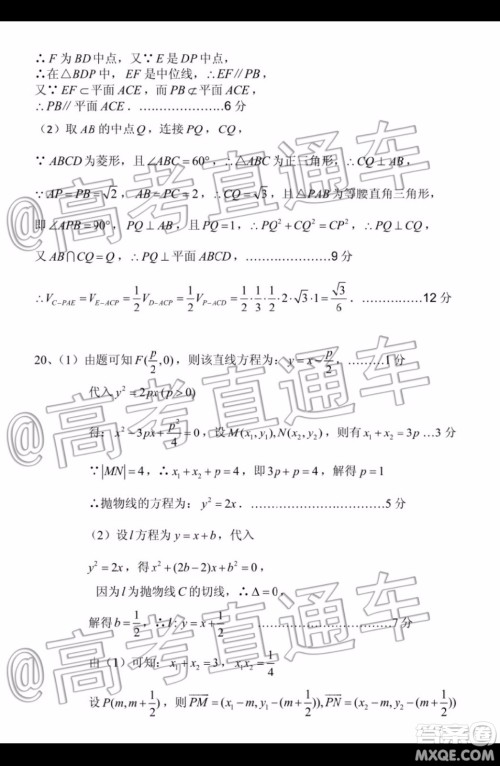 ∴F 为 BD中点，又∵E 是 DP 中点，
∴在△BDP 中，EF 是中位线，∴EF∥PB，
又∵EF⊂平面 ACE，而 PB⊄平面 ACE，
∴PB∥ 平面 ACE．…………………6 分
（2）取 AB 的中点 Q，连接 PQ，CQ，
∵ABCD 为菱形，且∠ABC=60°，∴△ABC 为正三角形，∴CQ⊥AB，
∵AP=PB=√2，AB=PC=2，∴CQ=√3，且△PAB 为等腰直角三角形，
即∠APB=90°，PQ⊥AB，且 PQ=1，∴PQ²+CQ²=CP²，
又 AB∩CQ=Q，∴PQ⊥平面 ABCD，…………………9分
∴V_{C-PAE}=V_{E-ACP}=1/2 V_{D-ACP}=1/2 V_{P-ACD}=1/2·1/3·1/2·2·√3·1=√3/6．……………12 分
20、（1）由题可知 F(p/2,0)，则该直线方程为：y=x-p/2，………1 分
代入 y²=2px(p>0)
得：x²-3px+p²/4=0，设 M(x₁,y₁),N(x₂,y₂)，则有 x₁+x₂=3p …3 分
∵|MN|=4，∴x₁+x₂+p=4，即3p+p=4，解得 p=1
∴抛物线的方程为：y²=2x．……………………………5 分
（2）设 l 方程为 y=x+b，代入
y²=2x，得 x²+(2b-2)x+b²=0，
因为 l 为抛物线 C 的切线，∴Δ=0，
解得 b=1/2，∴l：y=x+1/2 ……………………………7 分
由（1）可知：x₁+x₂=3，x₁x₂=1/4
设 P(m,m+1/2)，则 PM=(x₁-m,y₁-(m+1/2)),PN=(x₂-m,y₂-(m+1/2))
@高考直通车
@高考直通车
@高考直通车
答案圈
MXQE.COM